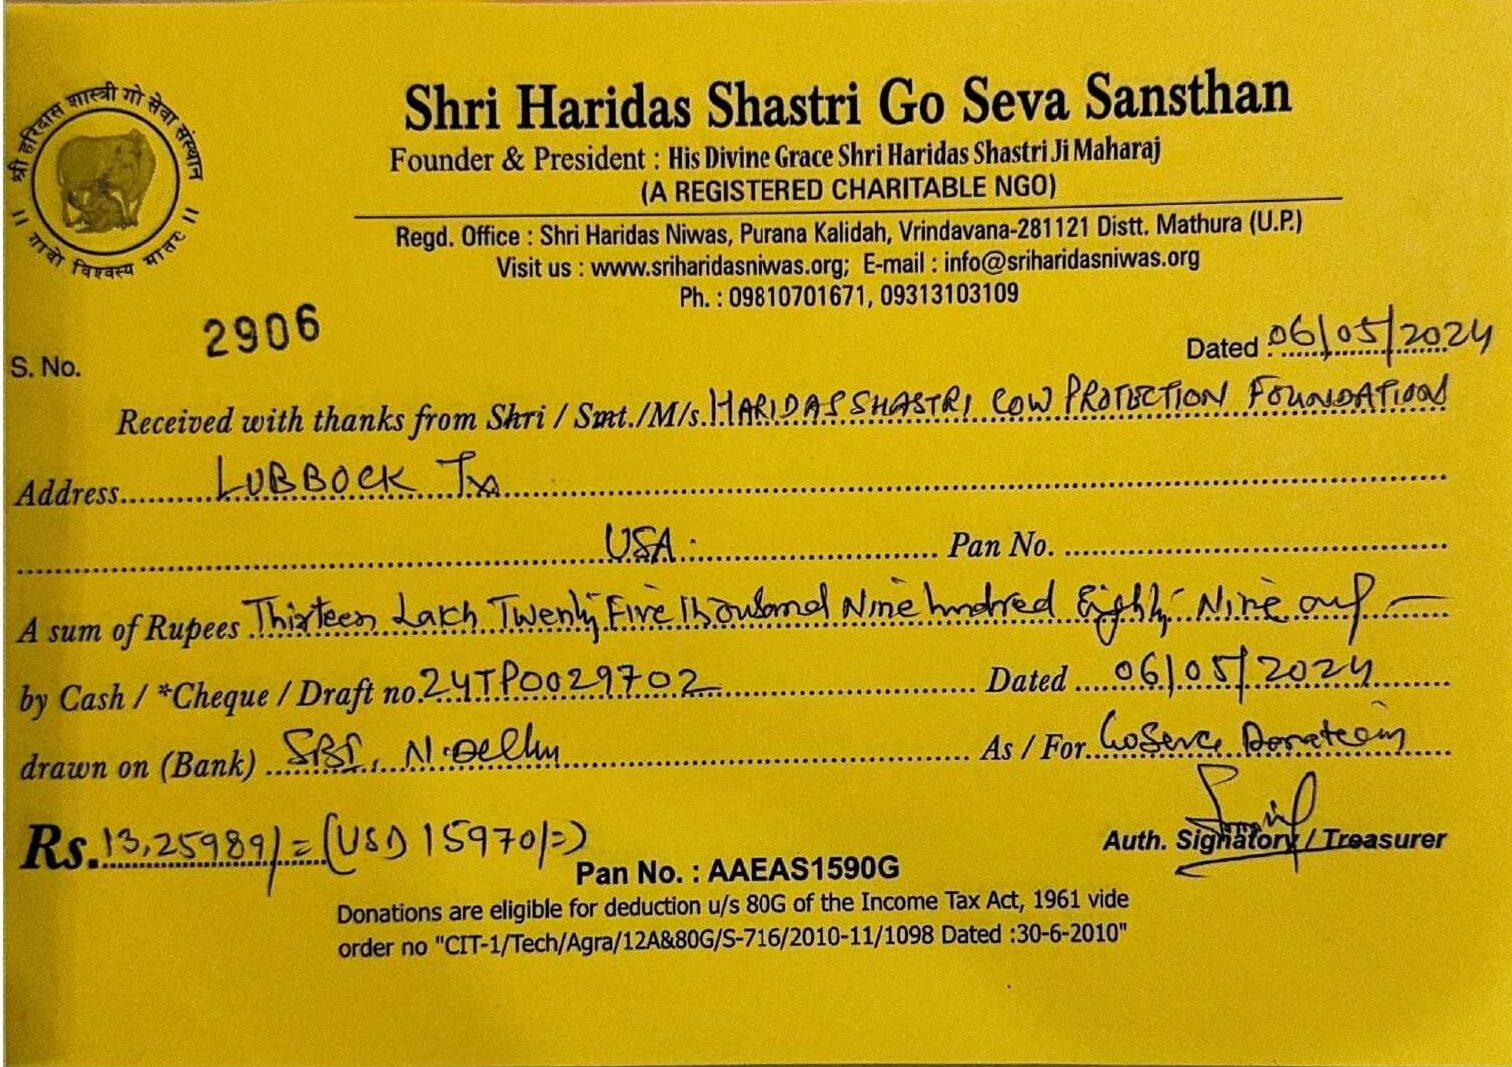 श्री हरिदास शास्त्री गो सेवा संस्थान
।। गावो विश्वस्य मातरः ।।
Shri Haridas Shastri Go Seva Sansthan
Founder & President : His Divine Grace Shri Haridas Shastri Ji Maharaj
(A REGISTERED CHARITABLE NGO)
Regd. Office : Shri Haridas Niwas, Purana Kalidah, Vrindavana-281121 Distt. Mathura (U.P.)
Visit us : www.sriharidasniwas.org; E-mail : info@sriharidasniwas.org
Ph. : 09810701671, 09313103109
S. No. 2906 Dated : 06/05/2024
Received with thanks from Shri / Smt./M/s. HARIDAS SHASTRI COW PROTECTION FOUNDATION
Address LUBBOCK Tx
USA. Pan No.
A sum of Rupees Thirteen Lakh Twenty Five Thousand Nine hundred Eighty Nine only
by Cash / *Cheque / Draft no. 24TP0029702 Dated 06/05/2024
drawn on (Bank) SBI, N. Delhi As / For GoSeva Donation
Rs. 13,25989/= (USD 15970/=) Auth. Signatory / Treasurer
Pan No. : AAEAS1590G
Donations are eligible for deduction u/s 80G of the Income Tax Act, 1961 vide
order no "CIT-1/Tech/Agra/12A&80G/S-716/2010-11/1098 Dated :30-6-2010"